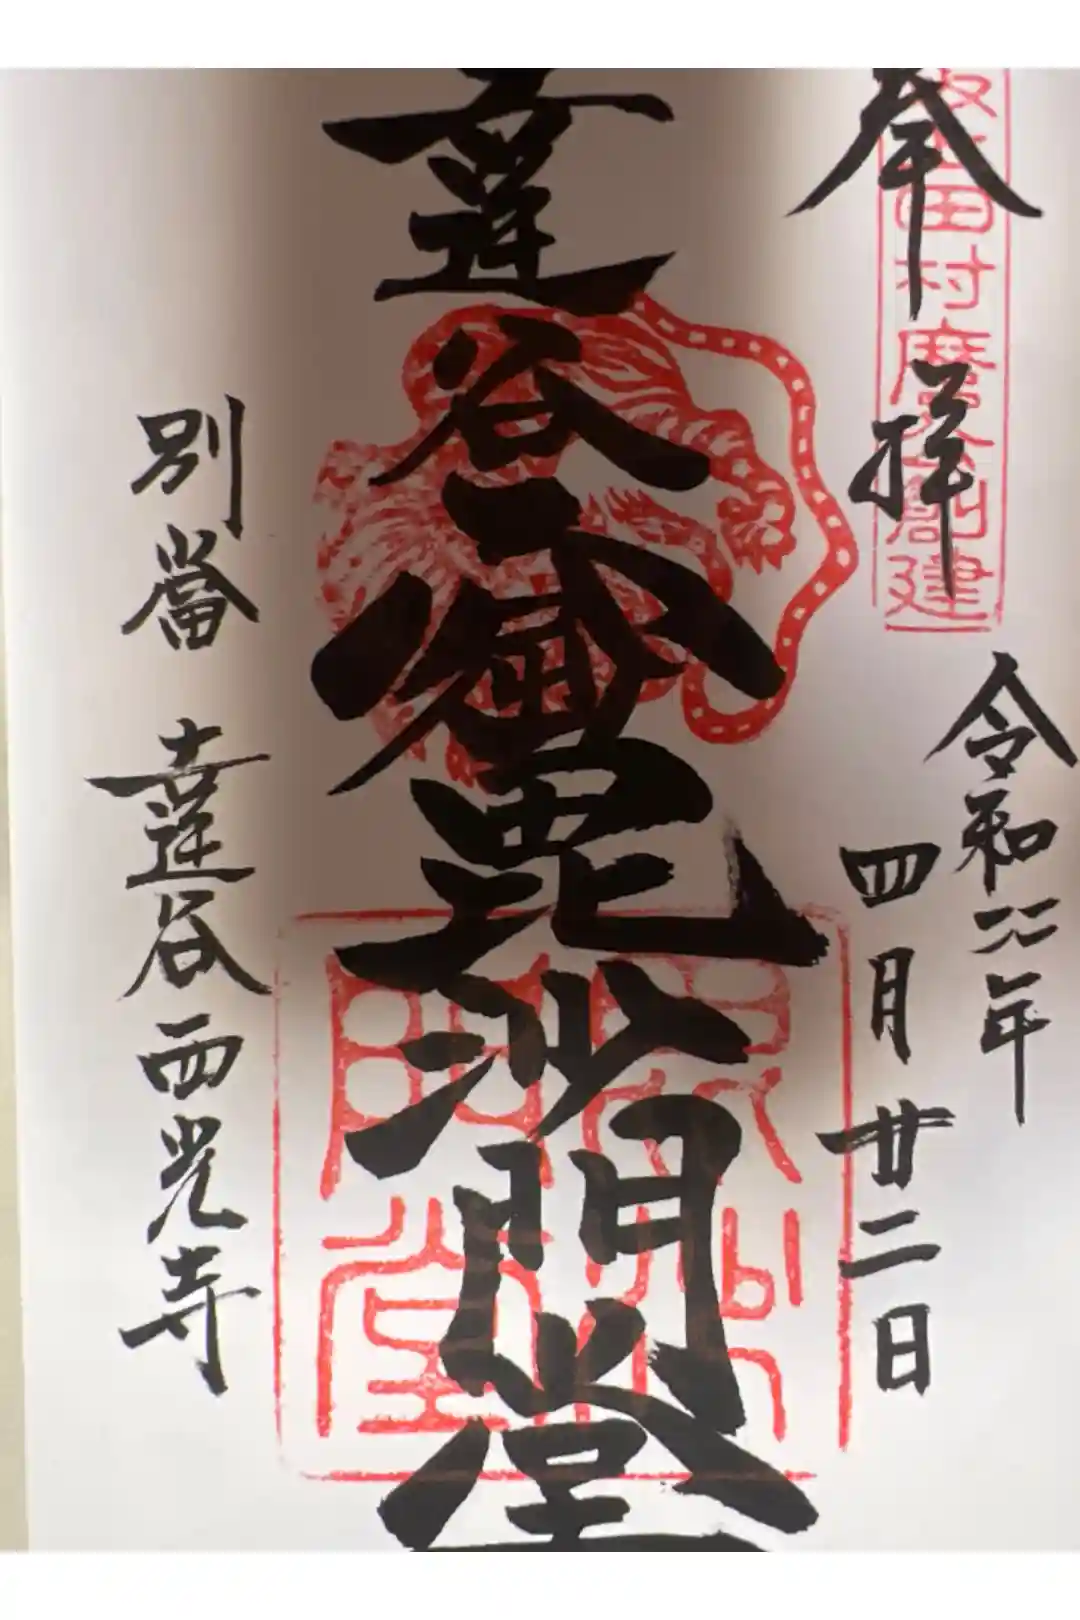 奉拝
坂上田村麿公創建
令和六年
四月廿二日
達谷窟毘沙門堂
毘沙門堂
別當 達谷西光寺